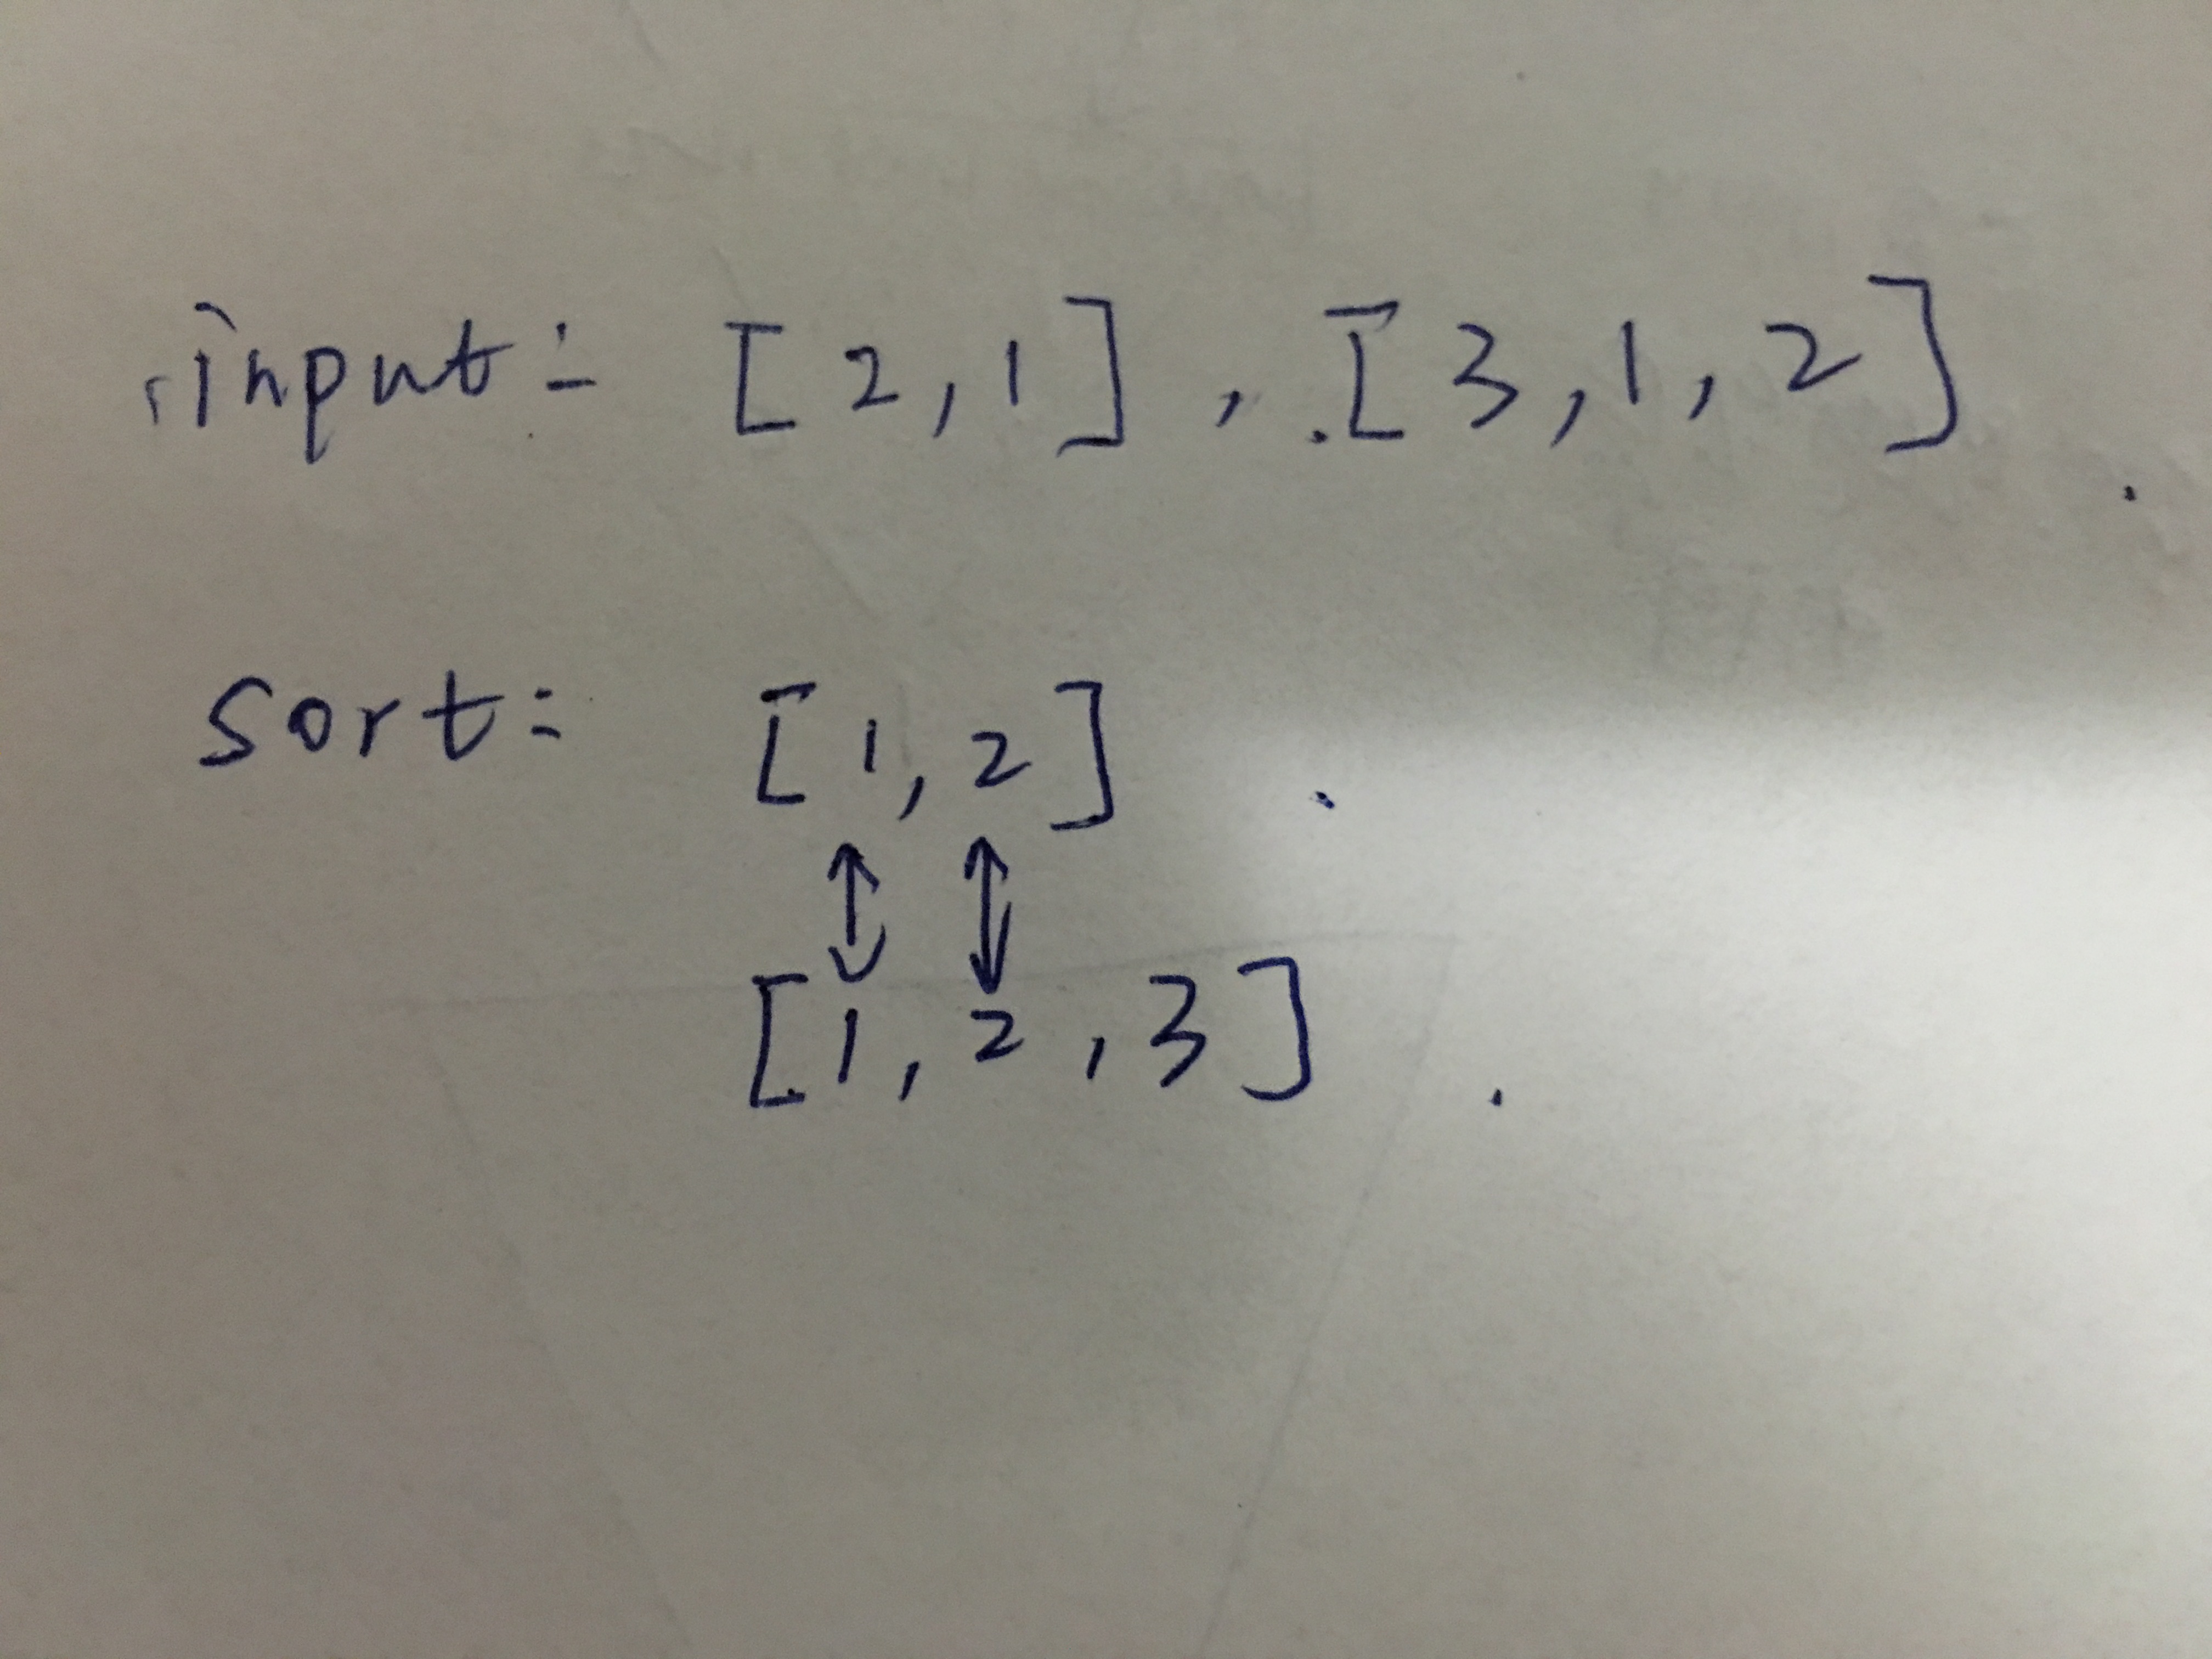 input: [2,1], [3,1,2]
sort: [1,2]
[1,2,3]